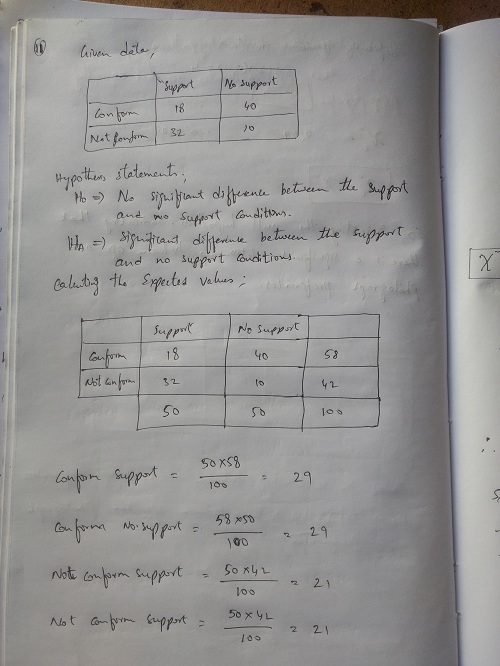 Given data,
Support No support
Conform 18 40
Not Conform 32 10
Hypothess statements;
H0 => No significant difference between the support
and no support conditions.
HA => significant difference between the support
and no support conditions
Calculting the Expected values;
Support No support
Conform 18 40 58
Not Conform 32 10 42
50 50 100
Conform Support = 50×58/100 = 29
Conforma No.support = 58×50/100 = 29
Note Conform support = 50×42/100 = 21
Not conform support = 50×42/100 = 21